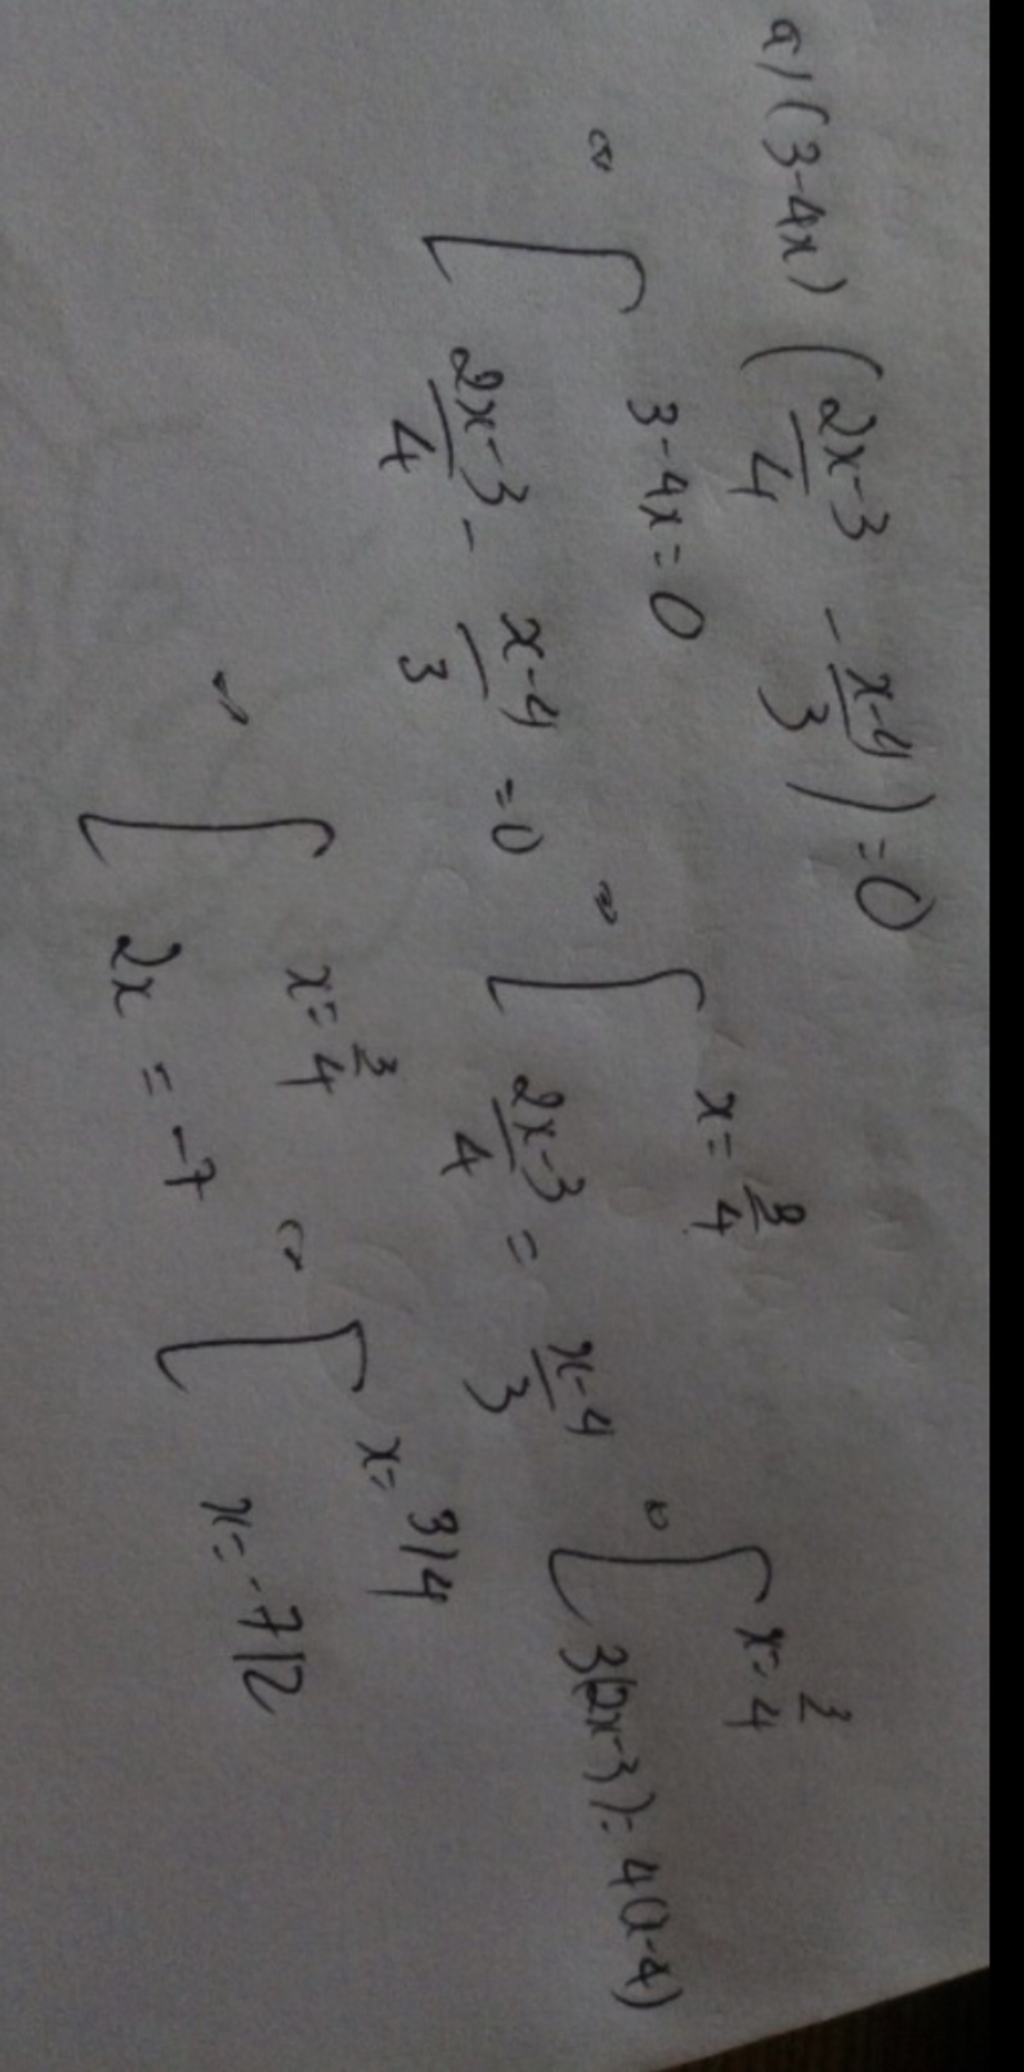 a) (3-4x) ( (2x-3)/4 - (x-4)/3 ) = 0
⇔ [ 3-4x = 0
(2x-3)/4 - (x-4)/3 = 0
⇔ [ x = 3/4
(2x-3)/4 = (x-4)/3
⇔ [ x = 3/4
3(2x-3) = 4(x-4)
⇔ [ x = 3/4
2x = -7
⇔ [ x = 3/4
x = -7/2